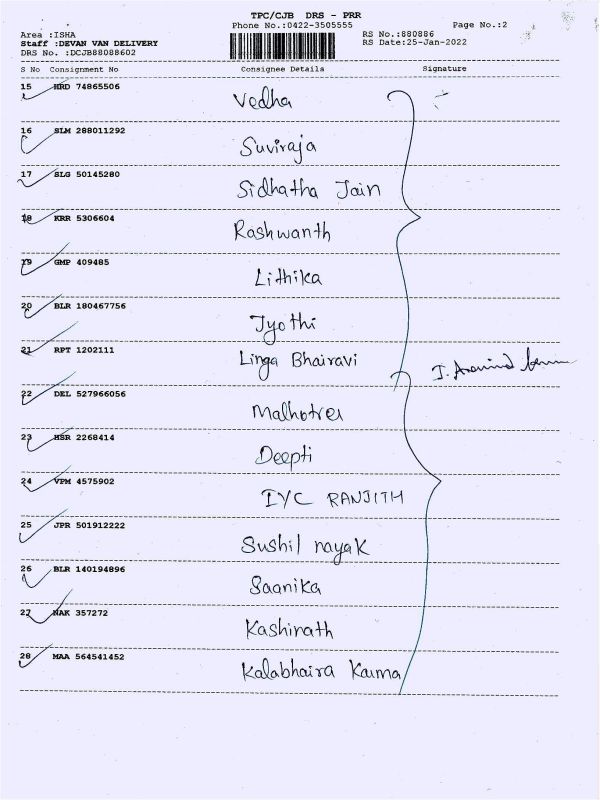 TPC/CJB DRS - PRR
Phone No.:0422-3505555 Page No.:2
Area :ISHA RS No.:880886
Staff :DEVAN VAN DELIVERY RS Date:25-Jan-2022
DRS No. :DCJB88088602
S No Consignment No Consignee Details Signature
15 HRD 74865506 Vedha
16 SLM 288011292 Suviraja
17 SLG 50145280 Sidhatha Jain
18 KRR 5306604 Rashwanth
19 GMP 409485 Lithika
20 BLR 180467756 Jyothi
21 RPT 1202111 Linga Bhairavi
J. Aravind
22 DEL 527966056 Malhotra
23 HSR 2268414 Deepti
24 VPM 4575902 IYC RANJITH
25 JPR 501912222 Sushil nayak
26 BLR 140194896 Saanika
27 NAK 357272 Kashinath
28 MAA 564541452 Kalabhaira Karma